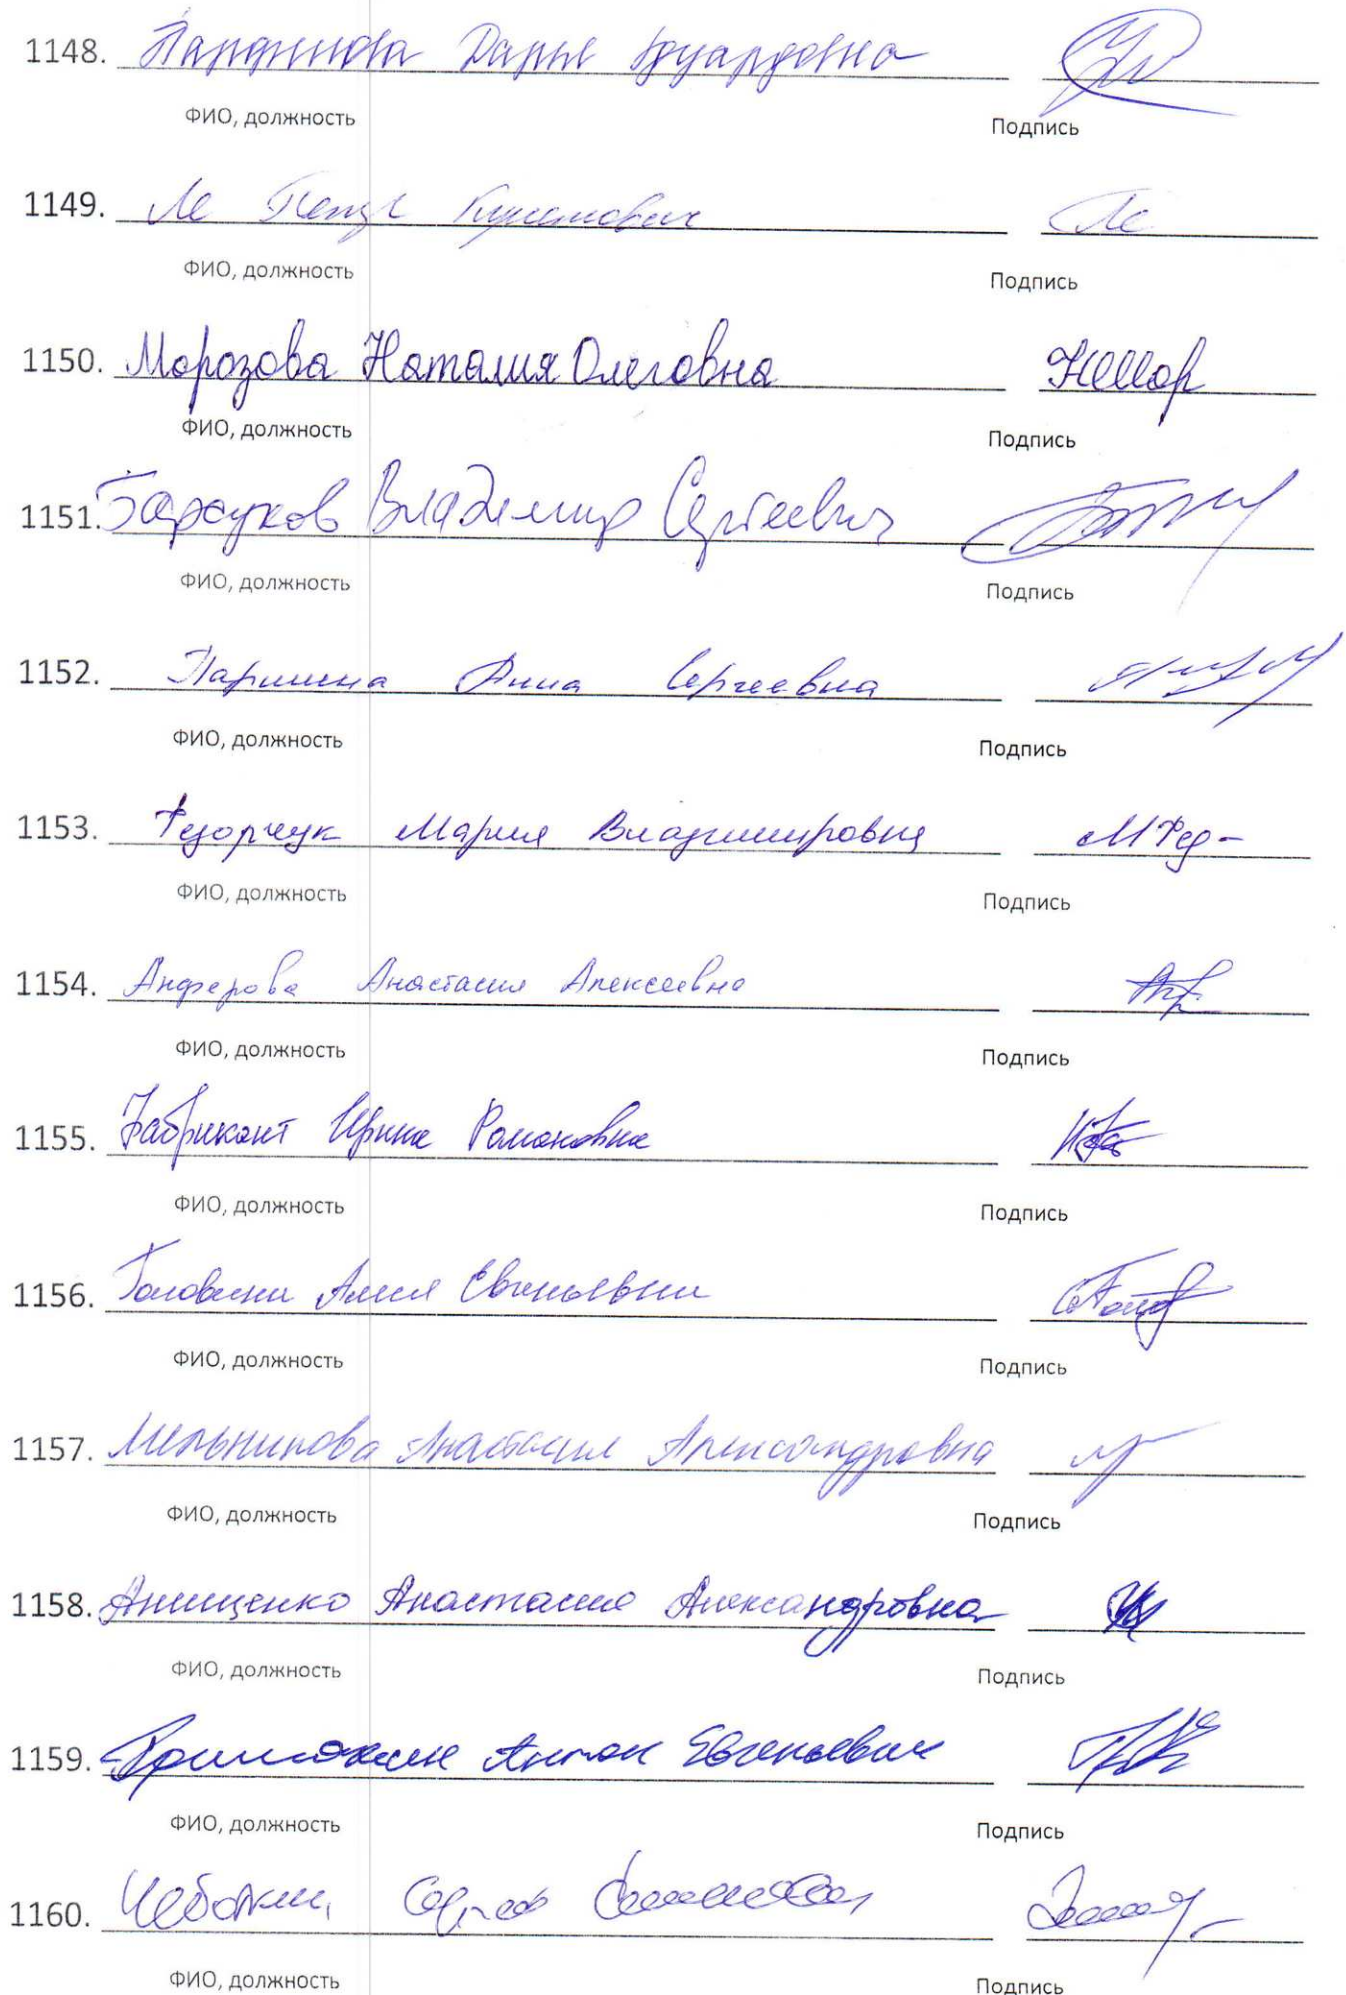 1148. Дарья Эдуардовна
ФИО, должность Подпись
1149. Ле Ле
ФИО, должность Подпись
1150. Морозова Наталия Олеговна НМор
ФИО, должность Подпись
1151. Барсуков Владимир Сергеевич
ФИО, должность Подпись
1152. Паршина Анна Сергеевна
ФИО, должность Подпись
1153. Федорчук Мария Владимировна МФед-
ФИО, должность Подпись
1154. Анферова Анастасия Алексеевна
ФИО, должность Подпись
1155. Фабрикант Ирина Романовна
ФИО, должность Подпись
1156. Головина Алиса Евгеньевна
ФИО, должность Подпись
1157. Мельникова Анастасия Александровна
ФИО, должность Подпись
1158. Анищенко Анастасия Александровна
ФИО, должность Подпись
1159. Антон Евгеньевич
ФИО, должность Подпись
1160.
ФИО, должность Подпись